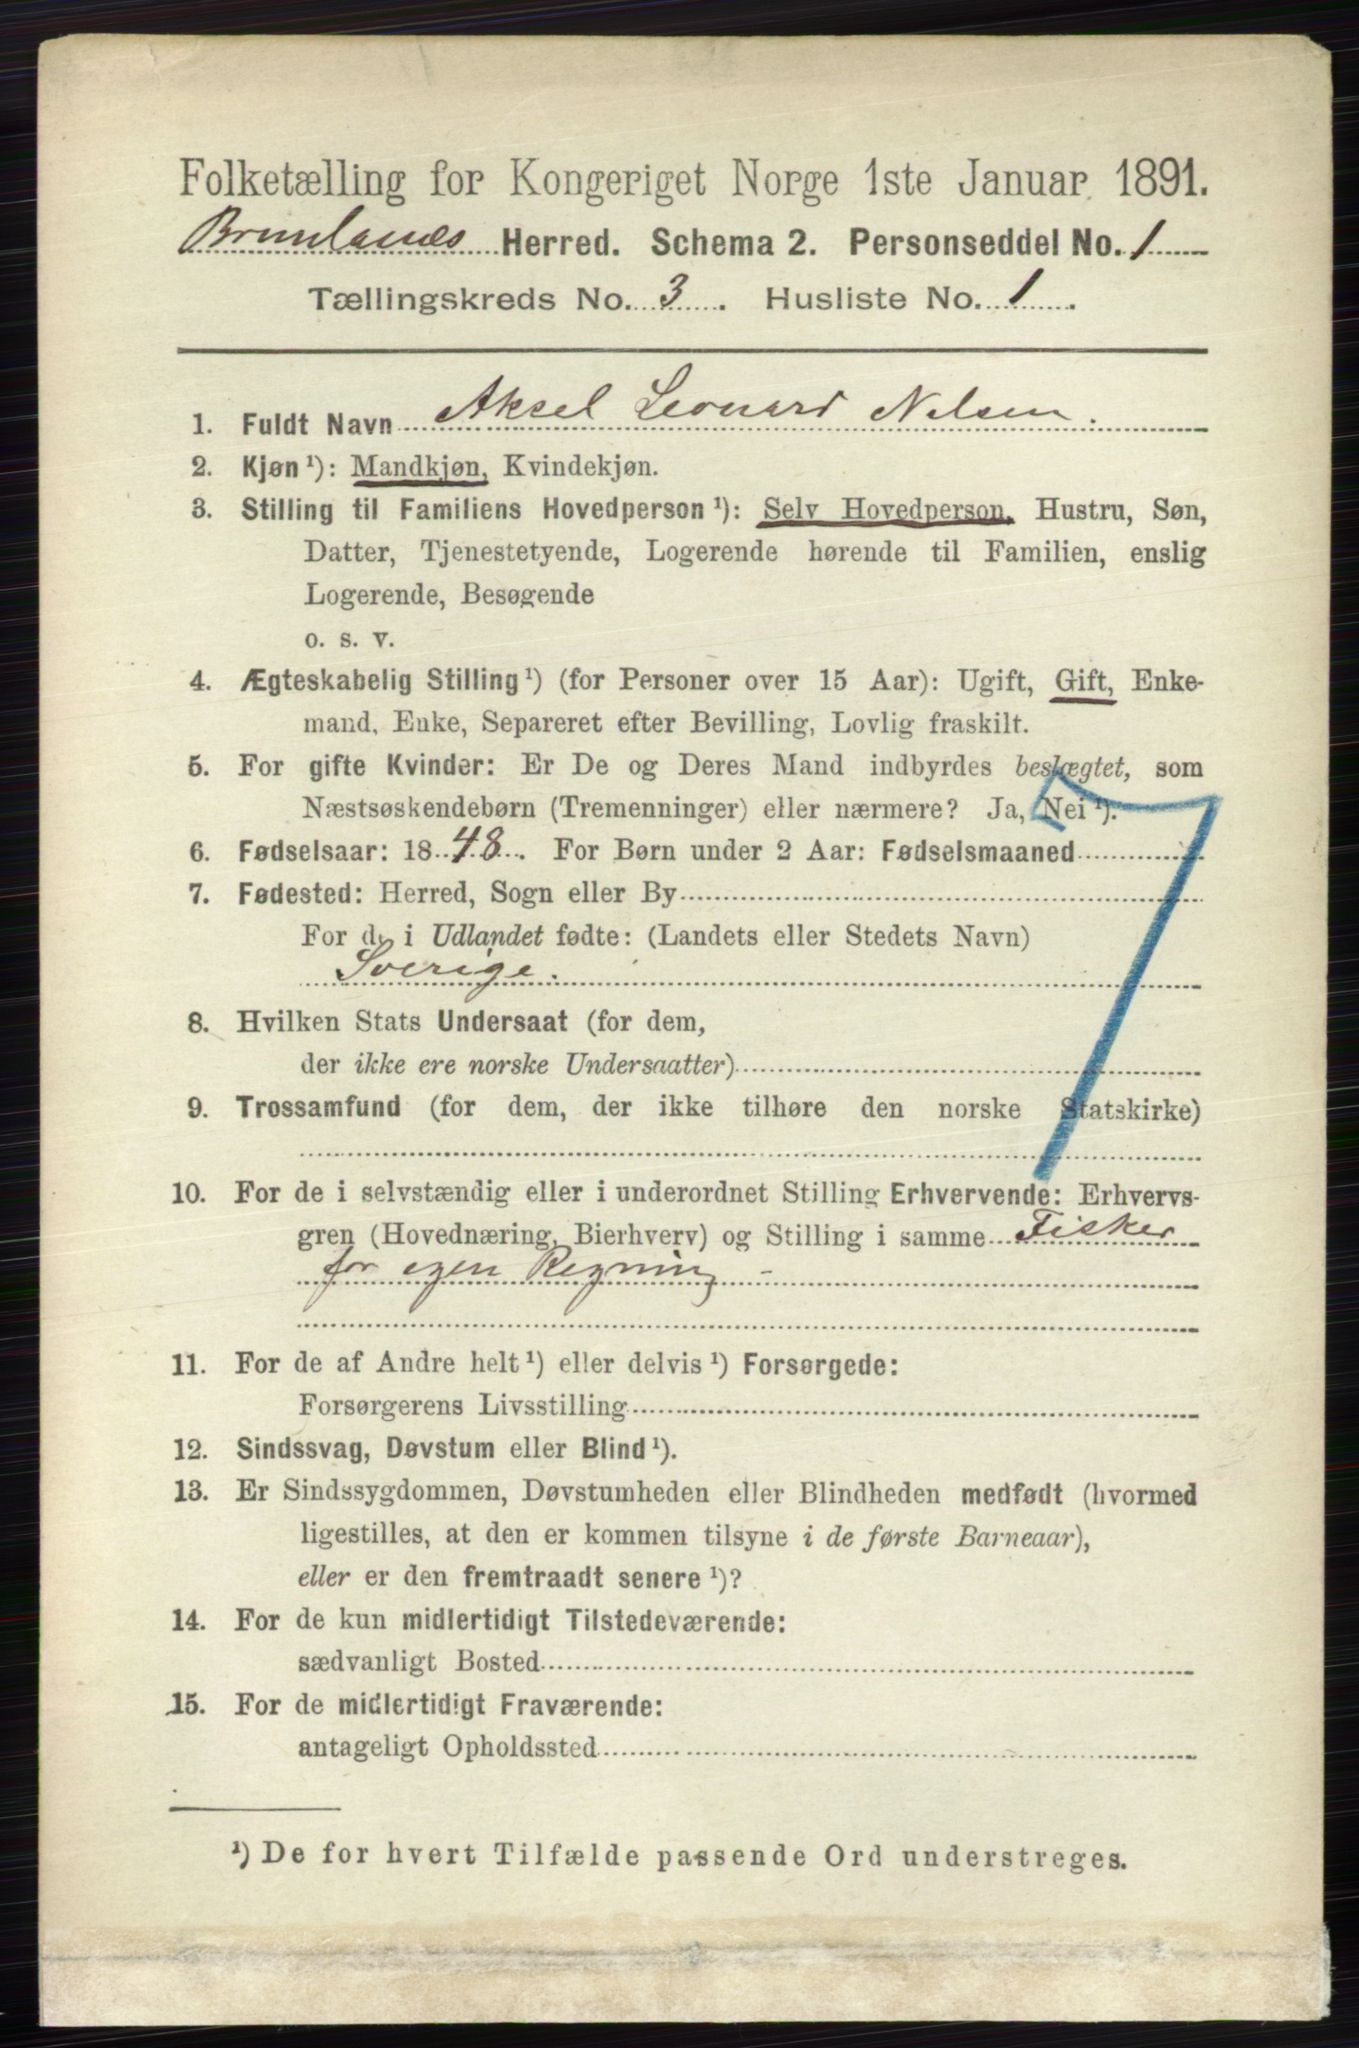 Folketælling for Kongeriget Norge 1ste Januar 1891.
Brunlanes Herred. Schema 2. Personseddel No. 1
Tællingskreds No. 3. Husliste No. 1.
1. Fuldt Navn Aksel Leonard Nilsen.
2. Kjøn ¹): Mandkjøn, Kvindekjøn.
3. Stilling til Familiens Hovedperson ¹): Selv Hovedperson, Hustru, Søn,
Datter, Tjenestetyende, Logerende hørende til Familien, enslig
Logerende, Besøgende
o. s. v.
4. Ægteskabelig Stilling ¹) (for Personer over 15 Aar): Ugift, Gift, Enke-
mand, Enke, Separeret efter Bevilling, Lovlig fraskilt.
5. For gifte Kvinder: Er De og Deres Mand indbyrdes beslægtet, som
Næstsøskendebørn (Tremenninger) eller nærmere? Ja, Nei ¹).
7
6. Fødselsaar: 1848. For Børn under 2 Aar: Fødselsmaaned
7. Fødested: Herred, Sogn eller By
For de i Udlandet fødte: (Landets eller Stedets Navn)
Sverige.
8. Hvilken Stats Undersaat (for dem,
der ikke ere norske Undersaatter)
9. Trossamfund (for dem, der ikke tilhøre den norske Statskirke)
10. For de i selvstændig eller i underordnet Stilling Erhvervende: Erhvervs-
gren (Hovednæring, Bierhverv) og Stilling i samme Fisker
for egen Regning -
11. For de af Andre helt ¹) eller delvis ¹) Forsørgede:
Forsørgerens Livsstilling
12. Sindssvag, Døvstum eller Blind ¹).
13. Er Sindssygdommen, Døvstumheden eller Blindheden medfødt (hvormed
ligestilles, at den er kommen tilsyne i de første Barneaar),
eller er den fremtraadt senere ¹)?
14. For de kun midlertidigt Tilstedeværende:
sædvanligt Bosted
15. For de midlertidigt Fraværende:
antageligt Opholdssted
¹) De for hvert Tilfælde passende Ord understreges.